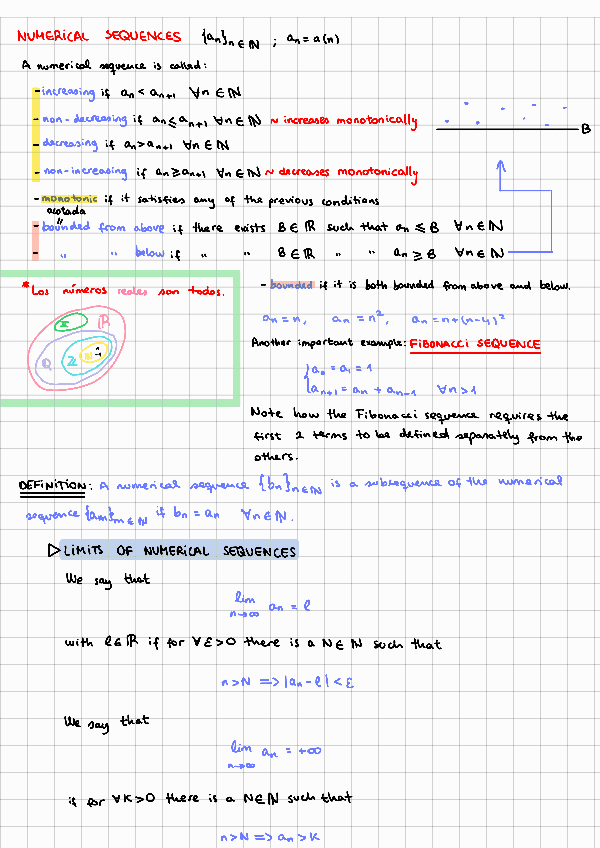 NUMERICAL SEQUENCES {aₙ}ₙ∈ℕ ; aₙ = a(n)
A numerical sequence is called:
- increasing if aₙ < aₙ₊₁ ∀n ∈ ℕ
- non-decreasing if aₙ ≤ aₙ₊₁ ∀n ∈ ℕ ~ increases monotonically
- decreasing if aₙ > aₙ₊₁ ∀n ∈ ℕ
- non-increasing if aₙ ≥ aₙ₊₁ ∀n ∈ ℕ ~ decreases monotonically
B
- monotonic if it satisfies any of the previous conditions
acotada
"
- bounded from above if there exists B ∈ ℝ such that aₙ ≤ B ∀n ∈ ℕ
- " " below if " " B ∈ ℝ " " aₙ ≥ B ∀n ∈ ℕ
* Los números reales son todos.
I ℝ
ℚ ℤ
- bounded if it is both bounded from above and below.
aₙ = n, aₙ = n², aₙ = n + (n-4)²
Another important example: FIBONACCI SEQUENCE
{a₀ = a₁ = 1
{aₙ₊₁ = aₙ + aₙ₋₁ ∀n > 1
Note how the Fibonacci sequence requires the
first 2 terms to be defined separately from the
others.
DEFINITION: A numerical sequence {bₙ}ₙ∈ℕ is a subsequence of the numerical
sequence {aₘ}ₘ∈ℕ if bₙ = aₙ ∀n ∈ ℕ.
▷ LIMITS OF NUMERICAL SEQUENCES
We say that
lim aₙ = l
n→∞
with l ∈ ℝ if for ∀ε > 0 there is a N ∈ ℕ such that
n > N => |aₙ - l| < ε
We say that
lim aₙ = +∞
n→∞
if for ∀K > 0 there is a N ∈ ℕ such that
n > N => aₙ > K